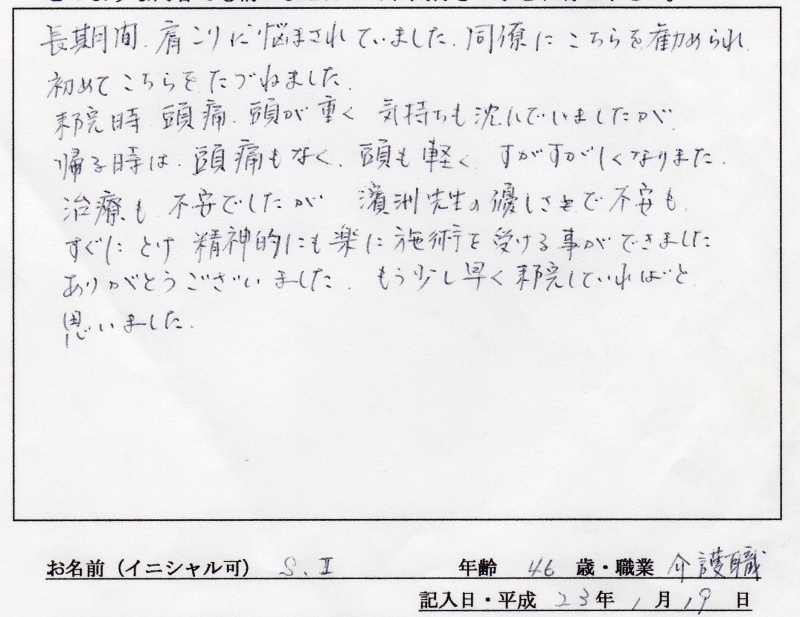 長期間、肩こりに悩まされていました。同僚にこちらを勧められ
初めてこちらをたづねました。
来院時 頭痛、頭が重く 気持ちも沈んでいましたが
帰る時は、頭痛もなく、頭も軽く すがすがしくなりました。
治療も 不安でしたが 濱洲先生の優しさとで不安も
すぐにとけ 精神的にも楽に施術を受ける事ができました
ありがとうございました。もう少し早く来院していればと
思いました。
お名前（イニシャル可） S.I 年齢 46 歳・職業 介護職
記入日・平成 23年 1月 19日